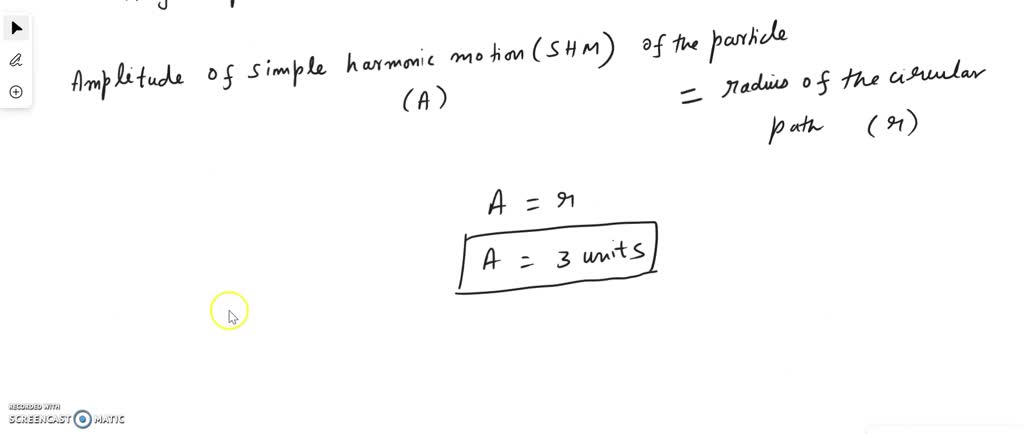 Amplitude of simple harmonic motion (SHM) of the particle
(A)
= radius of the circular
path (r)
A = r
A = 3 units
RECORDED WITH
SCREENCAST MATIC